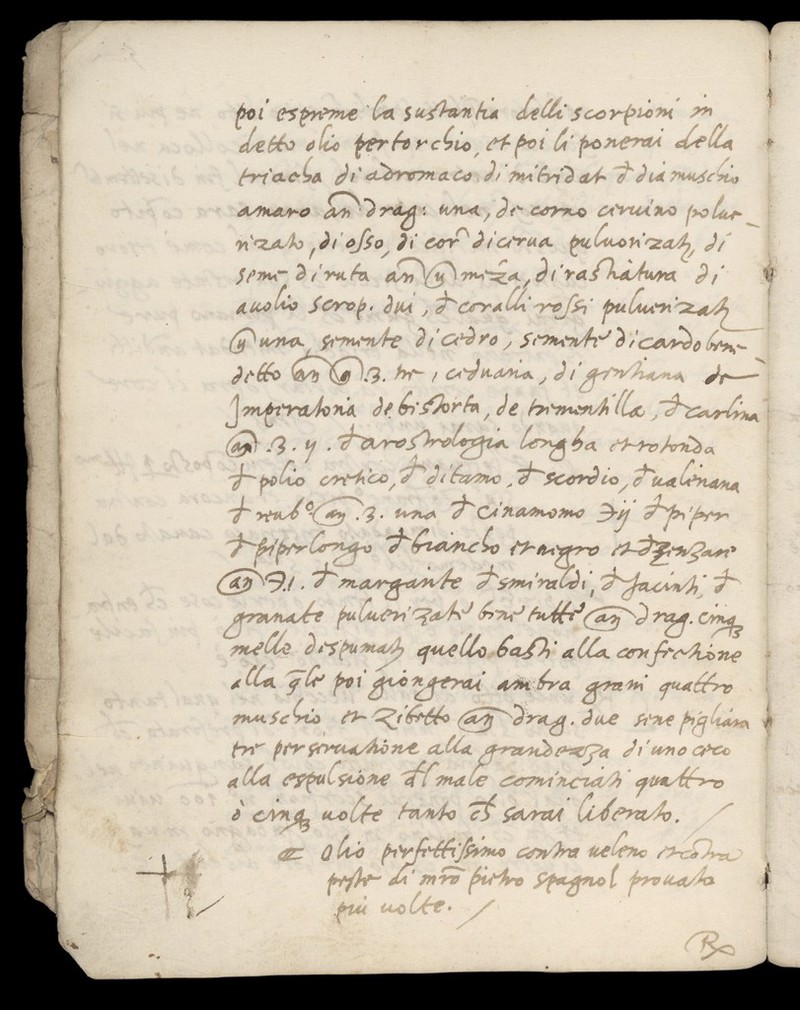 poi espreme la sustantia delli scorpioni in
detto olio per torchio, et poi li ponerai della
triacha di adromaco di mitridat đ diamuschio
amaro añ drag: una, de corno ceruino polue-
rizato, di osso, di cor̃ di cerua puluorizatj, di
seme di ruta añ meza, di raschiatura di
auolio scrop. dui, đ coralli rossi puluerizatj
una, semente di cedro, semente di cardo bene-
detto añ .3. tre, ceduaria, di gentiana de
Imperatoria de bistorta, de trementilla, đ carlina
añ .3. ij . đ arostrologia longha et rotonda
đ polio cretico, đ ditamo, đ scordio, đ ualeriana
đ reub.º añ .3. una đ cinamomo ℈ij đ piper
đ piper longo đ biancho et negro et đ zenzare
añ ℈.i. đ margarite đ smiraldi, đ Jacinti, đ
granate puluerizate bene tutte añ drag. cinq3
melle despumatj quello basti alla confectione
alla q̃le poi giongerai ambra grani quattro
muschio et zibetto añ drag. due sene pigliara
tre perseruatione alla grandezza di uno ceco
alla espulsione đl male cominciati quattro
ò cinq3 uolte tanto ch̃ sarai liberato. /
Olio perfettissimo contra ueleno et cõtra
peste di mr̃o pietro spagnol prouato
piu uolte. /
℞